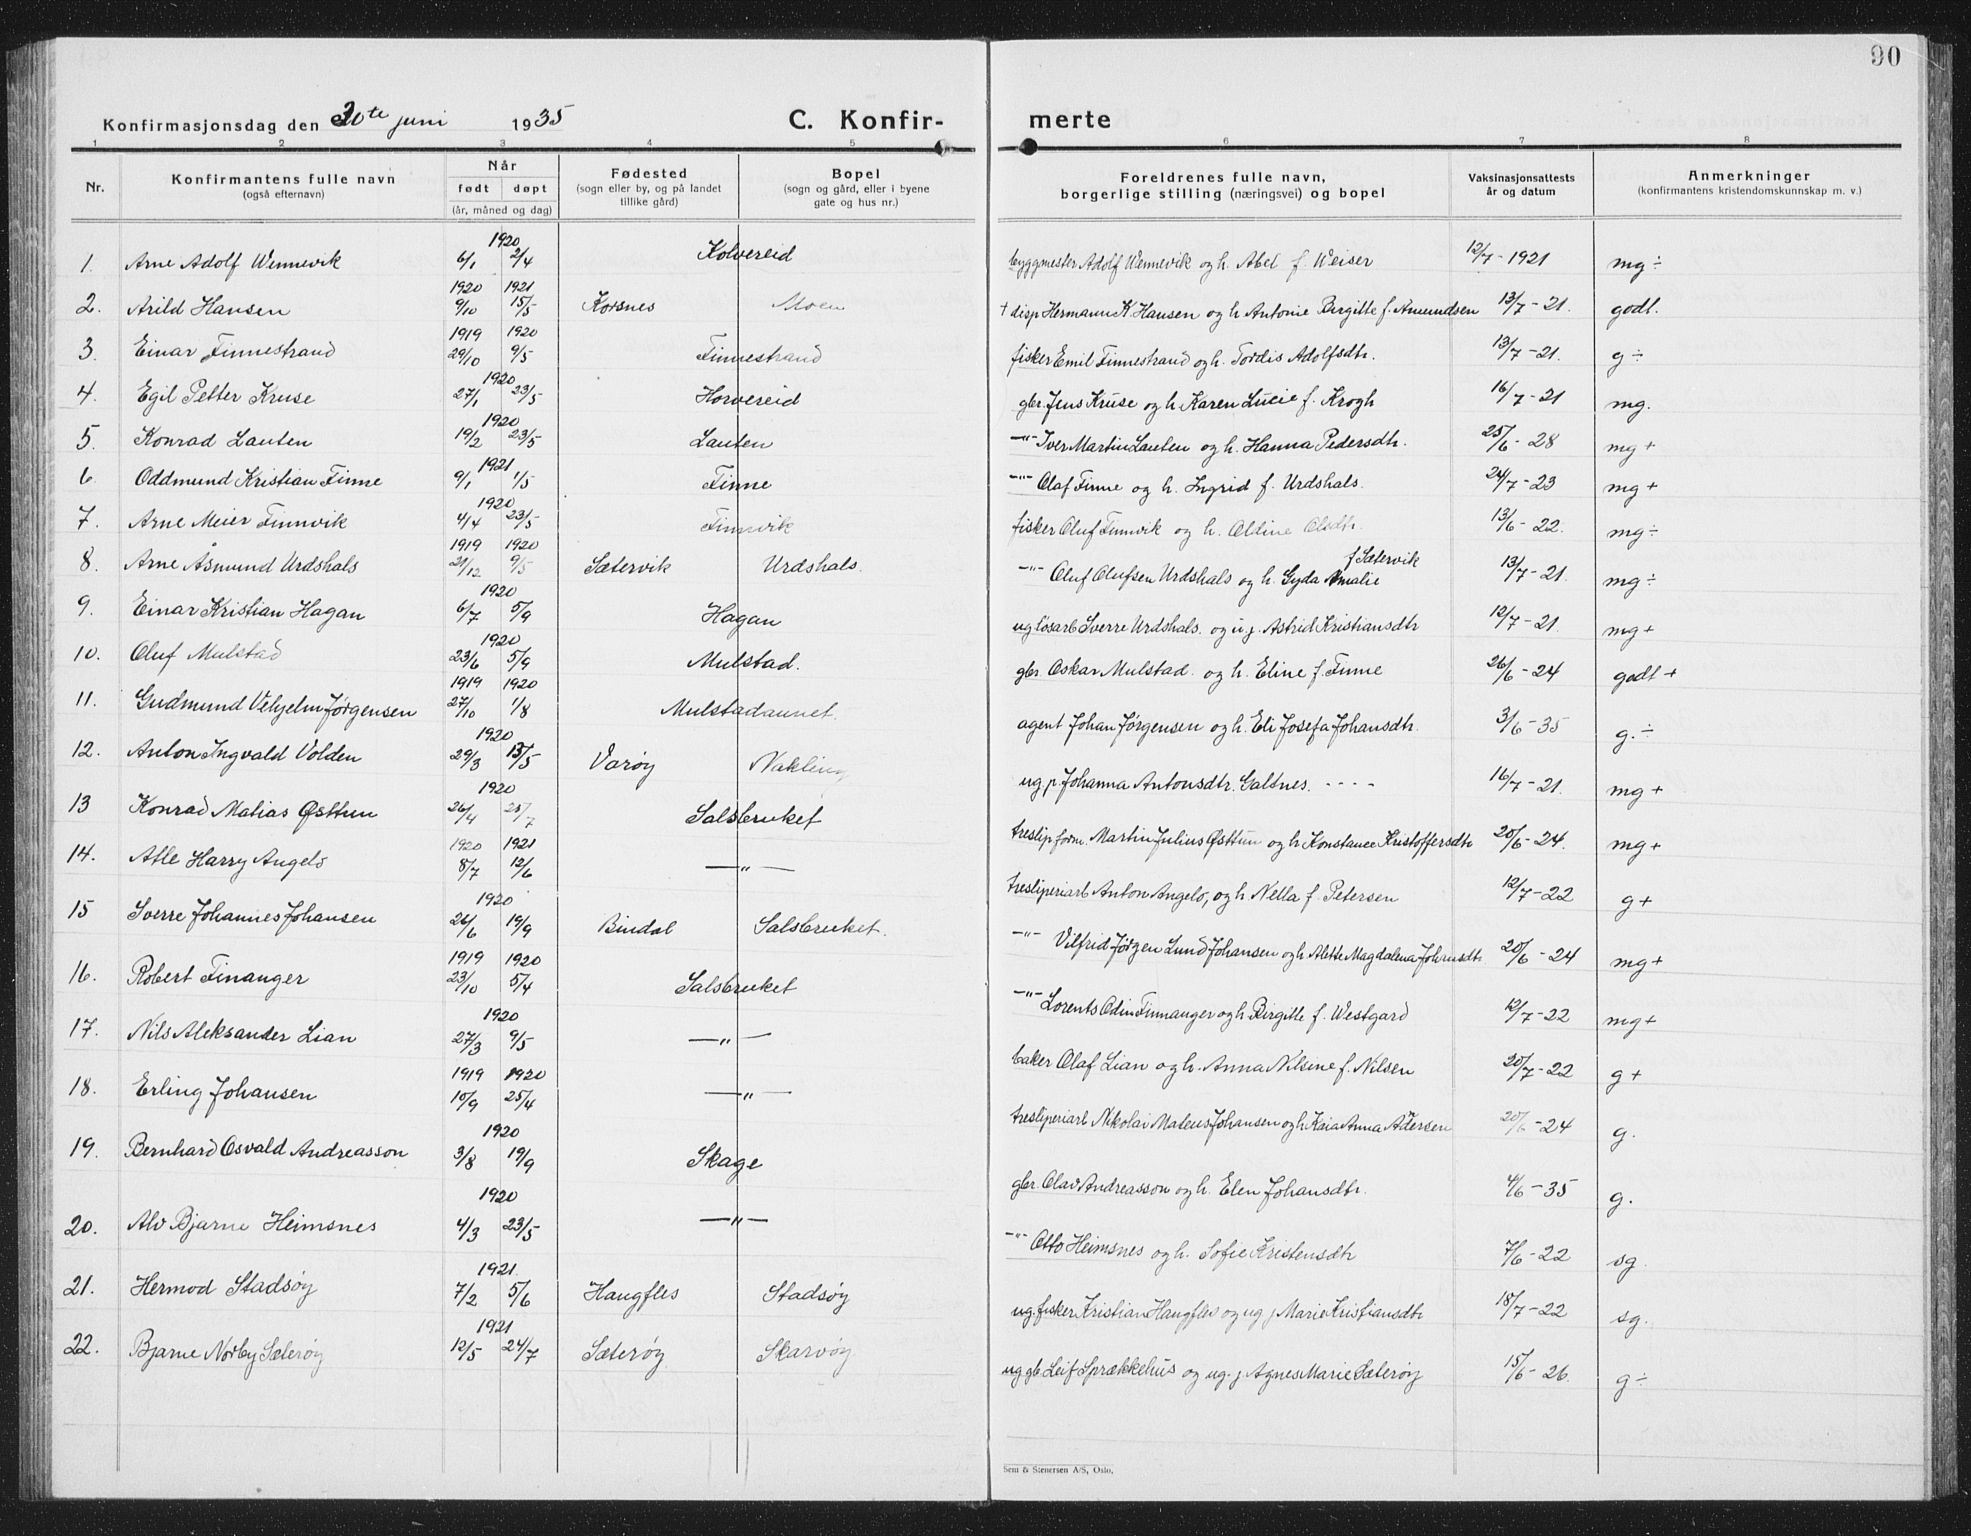 90
Konfirmasjonsdag den 30te juni 1935
C. Konfir-
merte
1 2 3 4 5 6 7 8
Nr.
Konfirmantens fulle navn
(også efternavn)
Når
født døpt
(år, måned og dag)
Fødested
(sogn eller by, og på landet
tillike gård)
Bopel
(sogn og gård, eller i byene
gate og hus nr.)
Foreldrenes fulle navn,
borgerlige stilling (næringsvei) og bopel
Vaksinasjonsattests
år og datum
Anmerkninger
(konfirmantens kristendomskunnskap m. v.)
1920
1. Arne Adolf Wennevik 6/1 2/4 Kolvereid byggmester Adolf Wennevik og h. Abel f. Weiser 12/7-1921 mg ÷
1920 1921
2. Arild Hansen 9/10 15/5 Korsnes Moen + disp Hermann K. Hansen og h Antonie Birgitte f. Amundsen 13/7-21. godt.
1919 1920
3. Einar Finnestrand 29/10 9/5 Finnestrand fisker Emil Finnestrand og h. Tordis Adolfsdtr. 13/7-21. g ÷
1920
4. Egil Petter Kruse 27/1 23/5 Horvereid gbr. Jens Kruse og h Karen Lucie f. Krogh 16/7-21 mg.
1920
5. Konrad Lauten 19/2 23/5 Lauten -"- Iver Martin Lauten og h. Hanna Pedersdtr. 25/6-28 mg +
1921
6. Oddmund Kristian Finne 9/1 1/5 Finne -"- Olaf Finne og h. Ingrid f. Urdshals. 24/7-23 mg +
1920
7. Arne Meier Finnvik 4/4 23/5 Finnvik fisker Oluf Finnvik og h. Oldine Olsdtr. 13/6-22. mg ÷
1919 1920
f Sætervik
8. Arne Åsmund Urdshals 21/12 9/5 Sætervik Urdshals. -"- Oluf Olufsen Urdshals og h. Gyda Amalie 13/7-21. mg ÷
1920
9. Einar Kristian Hagan 6/7 5/9 Hagan ug løsarb Sverre Urdshals. og u.j. Astrid Kristiansdtr 12/7-21. mg +
1920
10. Oluf Mulstad 23/6 5/9 Mulstad. gbr. Oskar Mulstad. og h. Eline f. Finne 26/6-24 godt +
1919 1920
11. Gudmund Vehjelm Jørgensen 27/10 1/8 Mulstadaunet. agent Johan Jørgensen og h. Eli Josefa Johansdtr. 3/6-35 g. ÷
1920
12. Anton Ingvald Volden 29/3 13/5 Varøy Nakling ug p. Johanna Antonsdtr. Galtnes. - - - - 16/7-21. mg +
1920
13 Konrad Matias Østtun 26/4 25/7 Salsbruket treslip form. Martin Julius Østtun og h Konstance Kristoffersdtr 20/6-24. mg +
1920 1921
14. Atle Harry Angelo 8/7 12/6 —"— tresliperiarb Anton Angelo, og h Nella f. Petersen 12/7-22 g +
1920
15 Sverre Johannes Johansen 26/6 19/9 Bindal Salsbruket. -"- Vilfrid Jørgen Lund Johansen og h Alette Magdalena Johansdtr 20/6-24 mg +
1919 1920
16. Robert Finanger 23/10 5/4 Salsbruket -"- Lorents Odin Finnanger og h Birgitte f. Westgard 12/7-22 mg +
1920
17. Nils Aleksander Lian 27/3 9/5 —"— baker Olaf Lian og h. Anna Nilsine f. Nilsen 20/7-22 g +
1919 1920
18. Erling Johansen 10/9 25/4 —"— tresliperiarb Nikolai Mateus Johansen og h Kaia Anna Adersen 20/6-24 g.
1920
19. Bernhard Osvald Andreasson 3/8 19/9 Skage gbr. Olav Andreasson og h. Elen Johansdtr. 4/6-35 g.
1920
20. Alv Bjarne Heimsnes 4/3 23/5 —"— -"- Otto Heimsnes og h. Sofie Kristensdtr 7/6-22 sg.
1921
21. Hermod Stadsøy 7/2 5/6 Haugfles Stadsøy ug. fisker Kristian Haugfles og ug j Marie Kristiansdtr 18/7-22 sg.
1921
22. Bjarne Norby Sæterøy 12/5 24/7 Sæterøy Skarvøy ug gb Leif Sprækkehus og ug. j. Agnes Marie Sæterøy 15/6-26. g ÷
Sem & Stenersen A/S, Oslo.